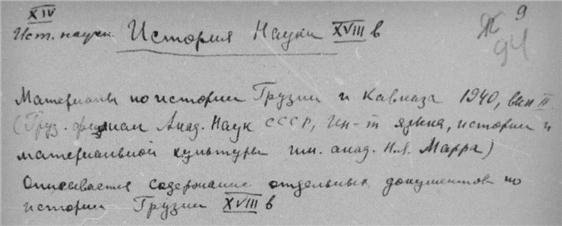 XIV
Ист. науки История Науки XVIII в
9
94
Материалы по истории Грузии и Кавказа 1940, вып II
(Груз. филиал Акад. Наук СССР, Ин-т языка, истории и
материальной культуры им. акад. Н.Я. Марра)
Описывается содержание отдельных документов по
истории Грузии XVIII в